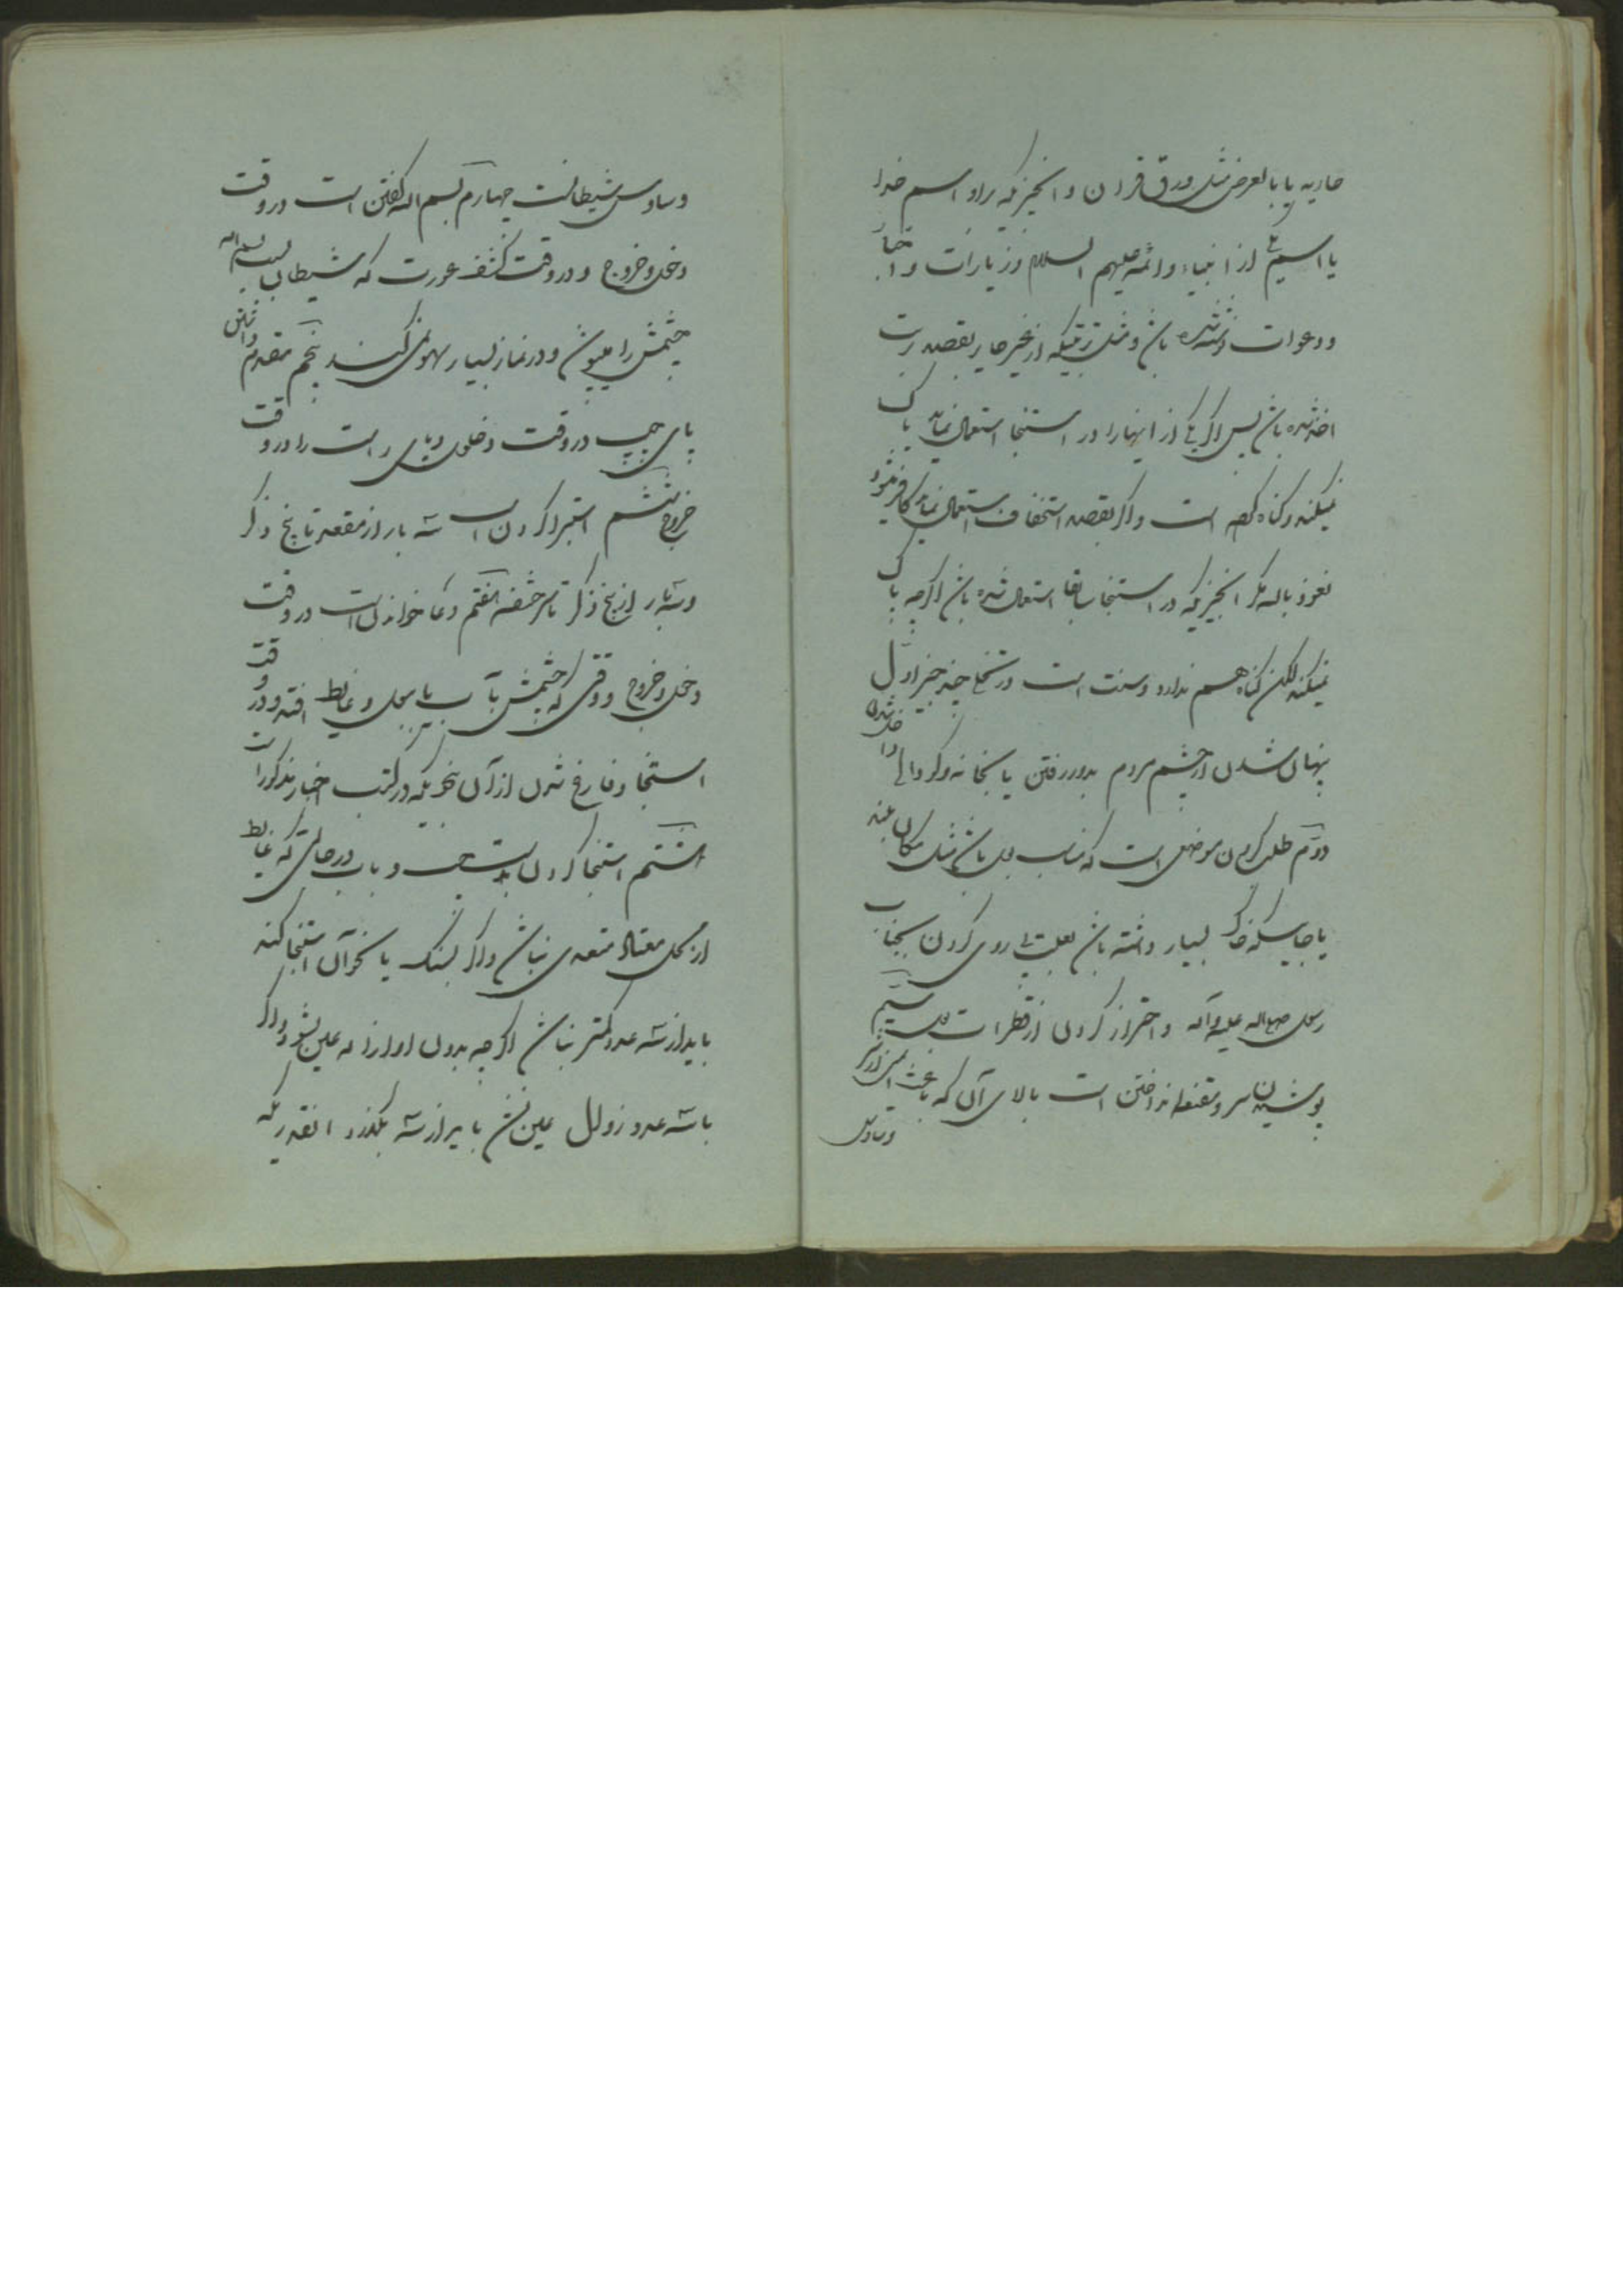 یا بالعرض مثل ورق قران و انچیزیکه براو اسم خدا
یا اسم یکی از انبیاء و ائمه علیهم السلام و زیارات و اخبار
و دعوات نوشته شده باشد و مثل تربتیکه از غیر حایر بقصد تربت
اخذ شده باشد پس اگر یکی از اینها را در استنجا استعمال نماید پاک
نمیکند و گناه هم است و اگر بقصد استخفاف استعمال نماید کافر میشود
نعوذ بالله مگر انچیزیکه در استنجا سابقا استعمال شده باشد اگرچه پاک
نمیکند لکن گناه هم ندارد و سنت است در تخلی چند چیز اول
پنهان شدن از چشم مردم بدور رفتن یا بخانه و گودالی داخل شدن
دوم طلب کردن موضعی است که مناسب بول باشد مثل مکان بلند
یا جاییکه خاک بسیار داشته باشد بعلت روی کردن بجناب
رسول صلی الله علیه و آله و احتراز کردن از قطرات بول سیم
پوشیدن سر و مقنعه انداختن است بالای آن که باعث ایمنی از شر
وساوس
وساوس شیطانست چهارم بسم الله گفتن است در وقت
دخول و خروج و در وقت کشف عورت که شیطان بسبب بسم الله
چشمش را میپوشد و در نماز بسیار سهو نمی کند پنجم مقدم داشتن
پای چپ در وقت دخول و پای راست را در وقت
خروج ششم استبرا کردن است سه بار از مقعد تا بیخ ذکر
و سه بار از بیخ ذکر تا سر حشفه هفتم دعا خواندن است در وقت
دخول و خروج و وقتی که چشمش بآب یا ببول و غایط افتد و در وقت
استنجا و فارغ شدن از آن نحویکه در کتب اخبار مذکور است
هشتم استنجا کردن بدست چپ و بآب در حالتی که غایط
از محل معتاد متعدی نباشد و اگر بسنگ یا نحو آن استنجا کند
باید از سه عدد کمتر نباشد اگرچه بدون او ازاله عین بشود و اگر
با سه عدد زوال عین نشد باید از سه بگذرد انقدریکه